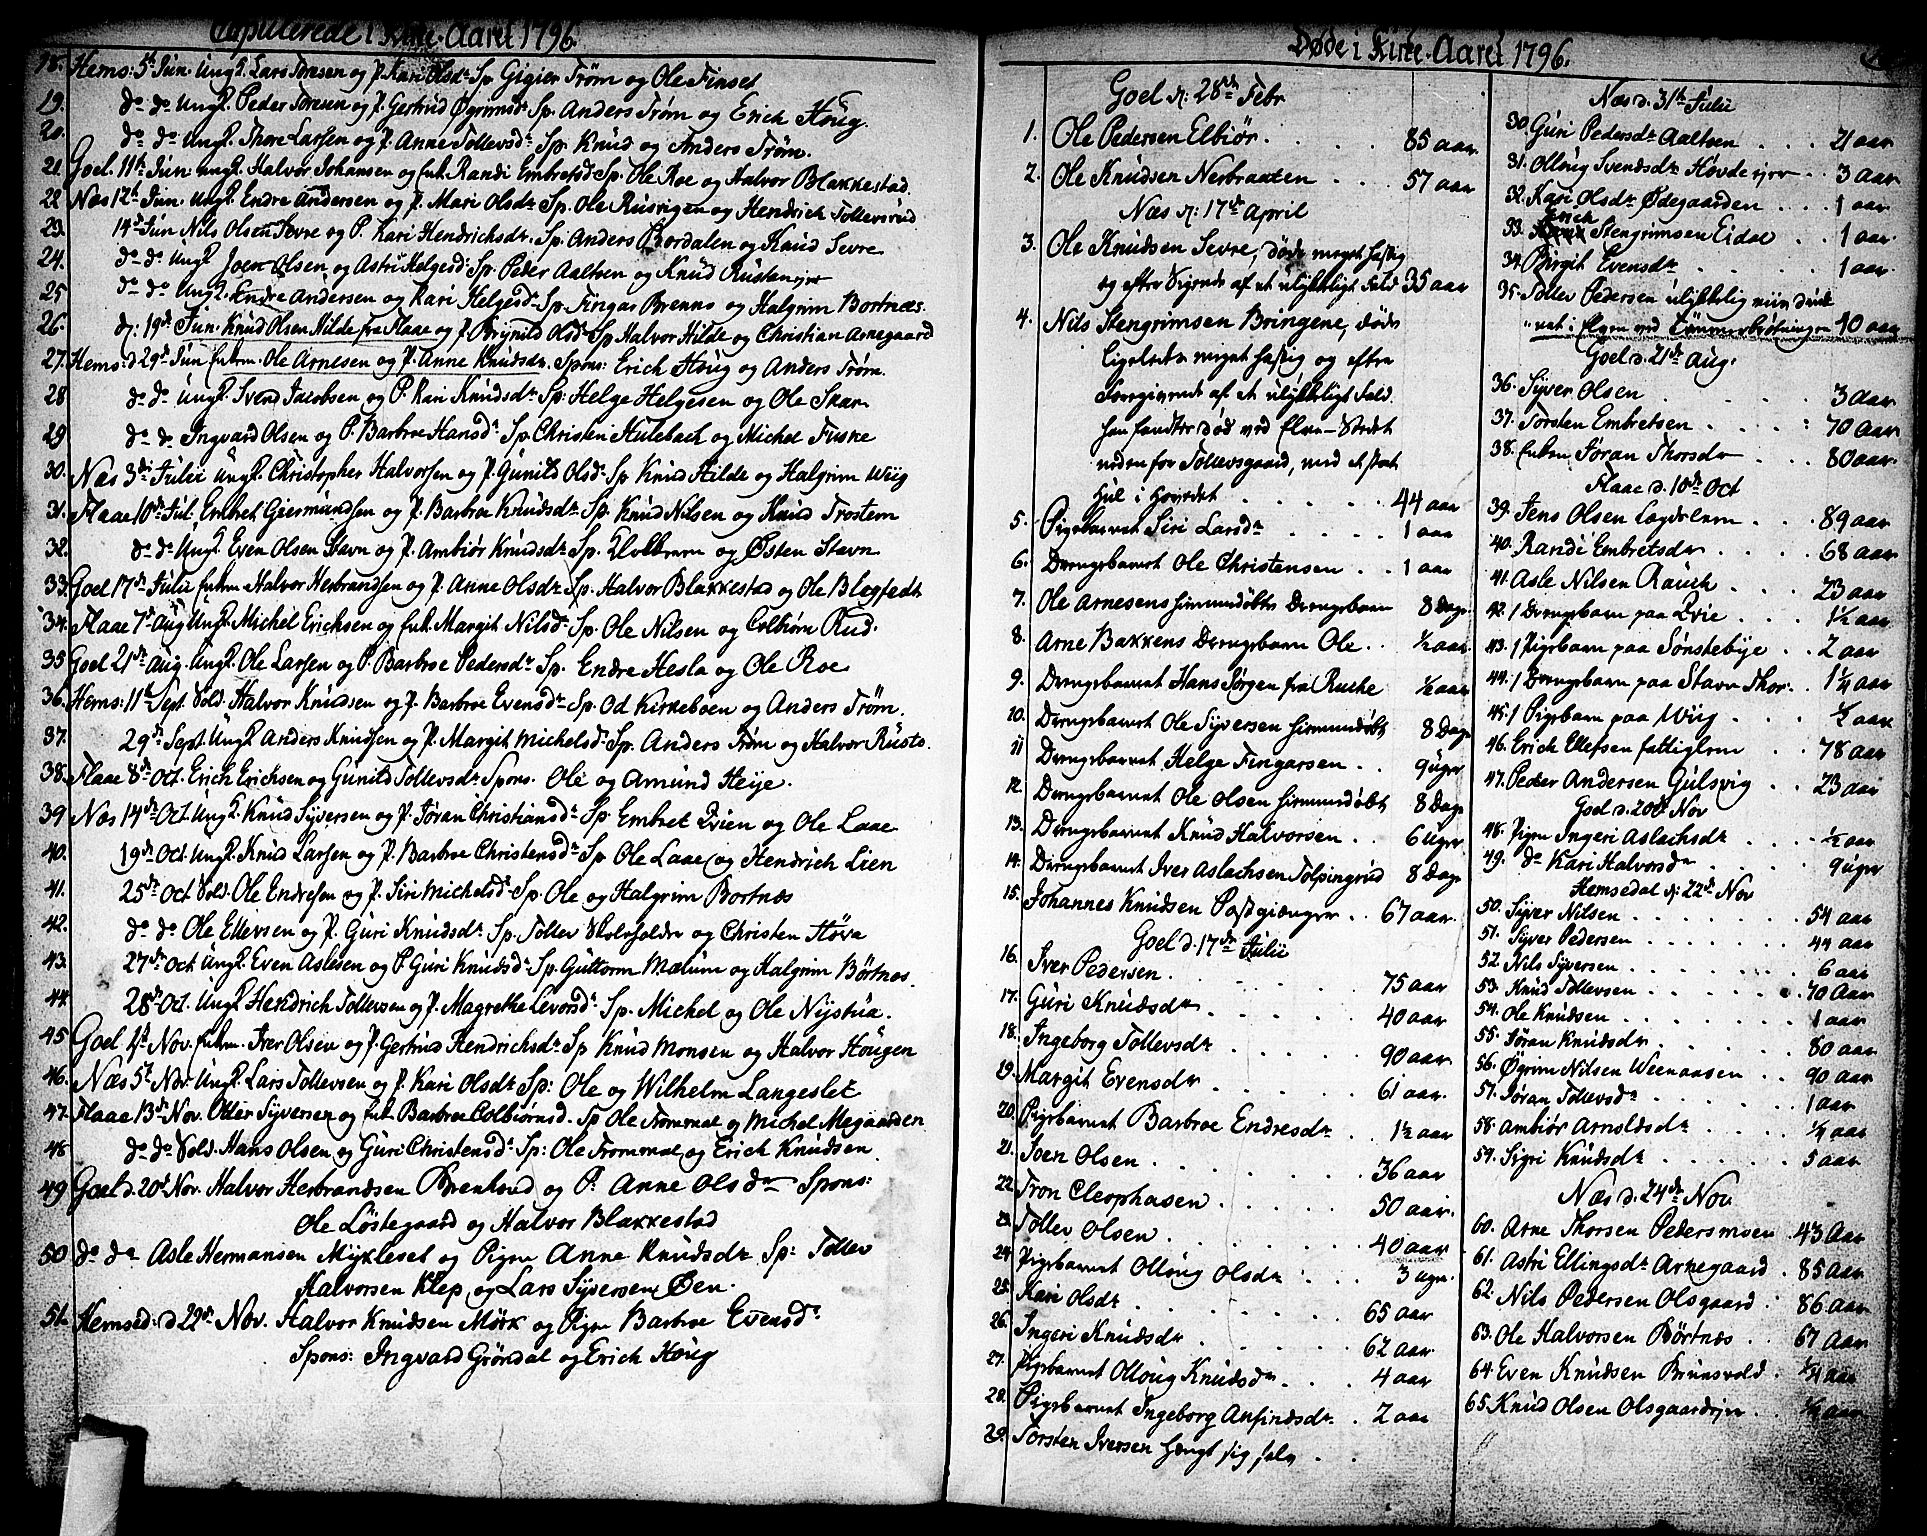 Copulerede i Kirke-Aaret 1796.
18. Hems: 5t Jun. Ungk. Lars Toresen og P. Kari Olsdr Sp. Gigier Trøm og Ole Finset
19. do do Ungk. Peder Toresen og P. Gertrud Øgrimsdr Sp. Anders Trøm og Erich Houg.
20. do do Ungk. Thore Larsen og P. Anne Tollevsdr Sp. Knud og Anders Trøm.
21. Goel. 11t Jun. Ungk. Halvor Johansen og Enk. Randi Embretsd Sp. Ole Roe og Halvor Blakkestad.
22. Næs 12t Jun. Ungk. Endre Andersen og P. Mari Olsdr Sp. Ole Rusvigen og Hendrich Tollevsrud
23. 14d Jun Nils Olsen Sevre og P. Kari Hendrichsdr. Sp. Anders Bordalen og Knud Sevre
24. do do Ungk Joen Olsen og Astri Helgesd. Sp. Peder Aaltsen og Knud Rustaneje
25 do do Ungk. Endre Andersen og Kari Helgesdr Sp. Fingar Brenno og Halgrim Bortnæs.
26. d: 19d Jun. Knud Olsen Hilde fra Flaae og P. Brynild Olsdr Sp Halvor Hilde og Christian Arnegaard
27. Hems: d 29d Jun Enkem. Ole Arnesen og P. Anne Knudsdr. Spons: Erich Houg og Anders Trøm.
28 do do Ungk. Svend Jacobsen og P. Kari Knudsdr Sp: Helge Helgesen og Ole Skar
29 do do Ingvard Olsen og P. Barbroe Hansdr Sp. Christen Hulebach og Michel Fuske
30. Næs 3d Julii Ungk. Christopher Halvorsen og P. Gunild Olsdr Sp Knud Hilde og Halgrim Wiig
31. Flaae 10d Jul. Embret Giermundsen og P. Barbroe Knudsdr Sp. Knud Nilsen og Knud Trostem
32. do do Ungk. Even Olsen Stavn og P. Ambiør Knudsdr Sp. og Østen Stavn
33. Goel 17d Julii Enkem Halvor Herbrandsen og P. Anne Olsdr Sp. Halvor Blakkestad og Ole Blegfedt
34. Flaae 7d Aug Ungk. Michel Erichsen og Enk. Margit Nilsdr Sp. Ole Nilsen og Colbiørn Rud.
35 Goel 21d Aug. Ungk. Ole Larsen og P. Barbroe Pedersdr Sp. Endre Hesla og Ole Roe
36. Hems: 11t Sept Sold. Halvor Knudsen og P. Barbroe Evensdr Sp. Od Kirkeboen og Anders Trøm.
37. 29d Sept. Ungk Anders Knudsen og P. Margit Michelsd. Sp. Anders Trøm og Halvor Rusto.
38. Flaae 8d Oct. Erich Erichsen og Gunild Tollevsdr Spons. Ole og Amund Heije.
39 Næs 14d Oct. Ungk. Knud Syversen og P. Jøran Christiansdr Sp. Embret Qvien og Ole Laae
40. 19d Oct. Ungk. Knud Larsen og P. Barbroe Christensdr Sp Ole Laae og Hendrich Lien
41. 25d Oct Sold. Ole Endresen og P. Siri Michelsdr Sp. Ole og Halgrim Bortnæs
42. do do Ole Ellevsen og P. Guri Knudsdr Sp. Tollev og Christen Høva
43. 27d Oct Ungk. Even Aslesen og P. Guri Knudsd. Sp. Guttorm Mælum og Halgrim Børtnes.
44. 28d Oct. Ungk. Hendrich Tollevsen og P. Magrethe Levorsdr Sp. Michel og Ole Nijstua.
45 Goel 4d Nov. Enkem. Iver Olsen og P. Gertrud Hendrichsdr Sp Knud Monsen og Halvor Hougen
46. Næs 5t Nov. Ungk. Lars Tollevsen og P. Kari Olsdr Sp: Ole og Wilhelm Langeslet
47. Flaae 13d Nov. Otter Syversen og Enk. Barbroe Colbiornsd. Sp Ole Trommal og Michel Megaarden
48 do do Sold. Hans Olsen og Guri Christensdr Sp: Ole Trommal og Erich Knudsen
49 Goel d. 20d Nov. Halvor Herbrandsen Brenhoud og P. Anne Olsdr Spons:
Ole Løstegaard og Halvor Blakkestad
50 do do Asle Hermansen Mykleset og Pige Anne Knudsdr Sp: Tollev
Halvorsen Klep og Lars Syversen Øen.
51. Hemsed: d 22d Nov. Halvor Knudsen Mørk og Pige Barbroe Evensdr
Spons: Ingvard Grøndal og Erich Houg
Døde i Kirke-Aaret 1796.
Goel d: 28d Febr
1. Ole Pedersen Elbiør . . . . 85 aar
2. Ole Knudsen Nerbraaten . . . 57 aar
Næs d: 17d April
3. Ole Knudsen Sevre, døde meget hastig
og efter Sigende af et ulykkeligt Fald 35 aar
4. Nils Stengrimsen Bringene, døde
ligeledes meget hastig og efter
Foregivende af et ulykkeligt Fald.
han fandtes død ved Elve-Bredet
neden for Tollevsgaard, med et stort
hul i Hovedet . . . . 44 aar
5. Pigebarnet Siri Larsdr . . . . 1 aar
6. Drengebarnet Ole Christensen . . 1 aar
7. Ole Arnesens hiemmedøbte Drengebarn 8 Dage
8. Arne Bakkens Drengebarn Ole . . ½ aar.
9. Drengebarnet Hans Jørgen fra Ruske ½ aar
10. Drengebarnet Ole Syversen hiemmedøbt 8 Dage
11 Drengebarnet Helge Fingarsen . . 9 uger
12 Drengebarnet Ole Olsen hiemmedøbt 8 Dage
13. Drengebarnet Knud Halvorsen . . 6 uger.
14. Drengebarnet Iver Aslachsen Tolpingrud 8 Dage
15. Johannes Knudsen Postgiænger . . 67 aar.
Goel d. 17d Julii
16. Iver Pedersen . . . . 75 aar
17. Guri Knudsdr . . . . 40 aar
18. Ingeborg Tollevsdr . . . . 90 aar
19. Margit Evensdr . . . . 61 aar.
20. Pigebarnet Barbroe Endresdr . . 1½ aar
21. Joen Olsen . . . . 36 aar
22. Tron Cleophasen . . . . 50 aar.
23. Tollev Olsen . . . . 40 aar
24 Pigebarnet Olloug Olsdr . . . 3 uger.
25. Kari Olsdr . . . . 65 aar
26. Ingeri Knudsdr . . . . 62 aar.
27. Pigebarnet Olloug Knudsdr . . . 4 aar
28. Pigebarnet Ingeborg Anfindsdr . 2 aar
29. Torsten Iversen hængt sig selv . . .
Næs d. 31t Julii
30. Guri Pedersdr Aaltsen . . . 21 aar
31. Olloug Svendsdr Hovde ejer . . 3 aar
32. Kari Olsdr Ødegaarden . . . 1 aar
33. Erich Stengrimsen Eidal . . 1 aar
34. Birgit Evensdr . . . . 1 aar
35. Tollev Pedersen ulykkelig
i Elven ved Tømmerbrøtningen 40 aar
Goel d. 21d Aug.
36. Syver Olsen . . . . 3 aar
37. Torsten Embretsen . . . . 70 aar
38. Enken Jøran Thorsdr . . . 80 aar.
Flaae d. 10d Oct
39. Jens Olsen Lægdslem . . . 89 aar
40. Randi Embretsdr . . . . 68 aar
41. Asle Nilsen Rauck . . . . 23 aar
42. 1 Drengebarn paa Qvie . . . 1½ aar
43. 1 Pigebarn paa Sønstebye . . 2 aar
44. 1 Drengebarn paa Stavn Thor: . 1¼ aar
45. 1 Pigebarn paa Wiig . . . ½ aar
46. Erich Ellefsen fattiglem . . 78 aar
47. Peder Andersen Gulsvig . . 23 aar
Goel d. 20d Nov
48. Pige Ingeri Aslachsdr . . . ½ aar
49. do Kari Halvorsdr . . . . 9 uger
Hemsedal d: 22d Nov
50. Syver Nilsen . . . . 54 aar
51. Syver Pedersen . . . . 44 aar
52. Nils Syversen . . . . 6 aar
53. Knud Tollevsen . . . . 70 aar
54. Ole Knudsen . . . . 1 aar
55. Jøran Knudsdr . . . . 80 aar
56. Øgrim Nilsen Weenaasen . . 90 aar
57. Jøran Tollevsdr . . . . 1 aar
58. Ambiør Arnoldsdr . . . . ¼ aar
59. Sigri Knudsdr . . . . 5 aar
Næs d. 24d Nov.
60. Arne Thorsen Pedersmoen . 43 aar
61. Astri Ellingsdr Arnegaard . 85 aar
62. Nils Pedersen Olsgaard . 86 aar
63. Ole Halvorsen Børtnæs . . 67 aar
64. Even Knudsen Brunsvold . ¼ aar
65. Knud Olsen Olsgaardeje . . ½ aar